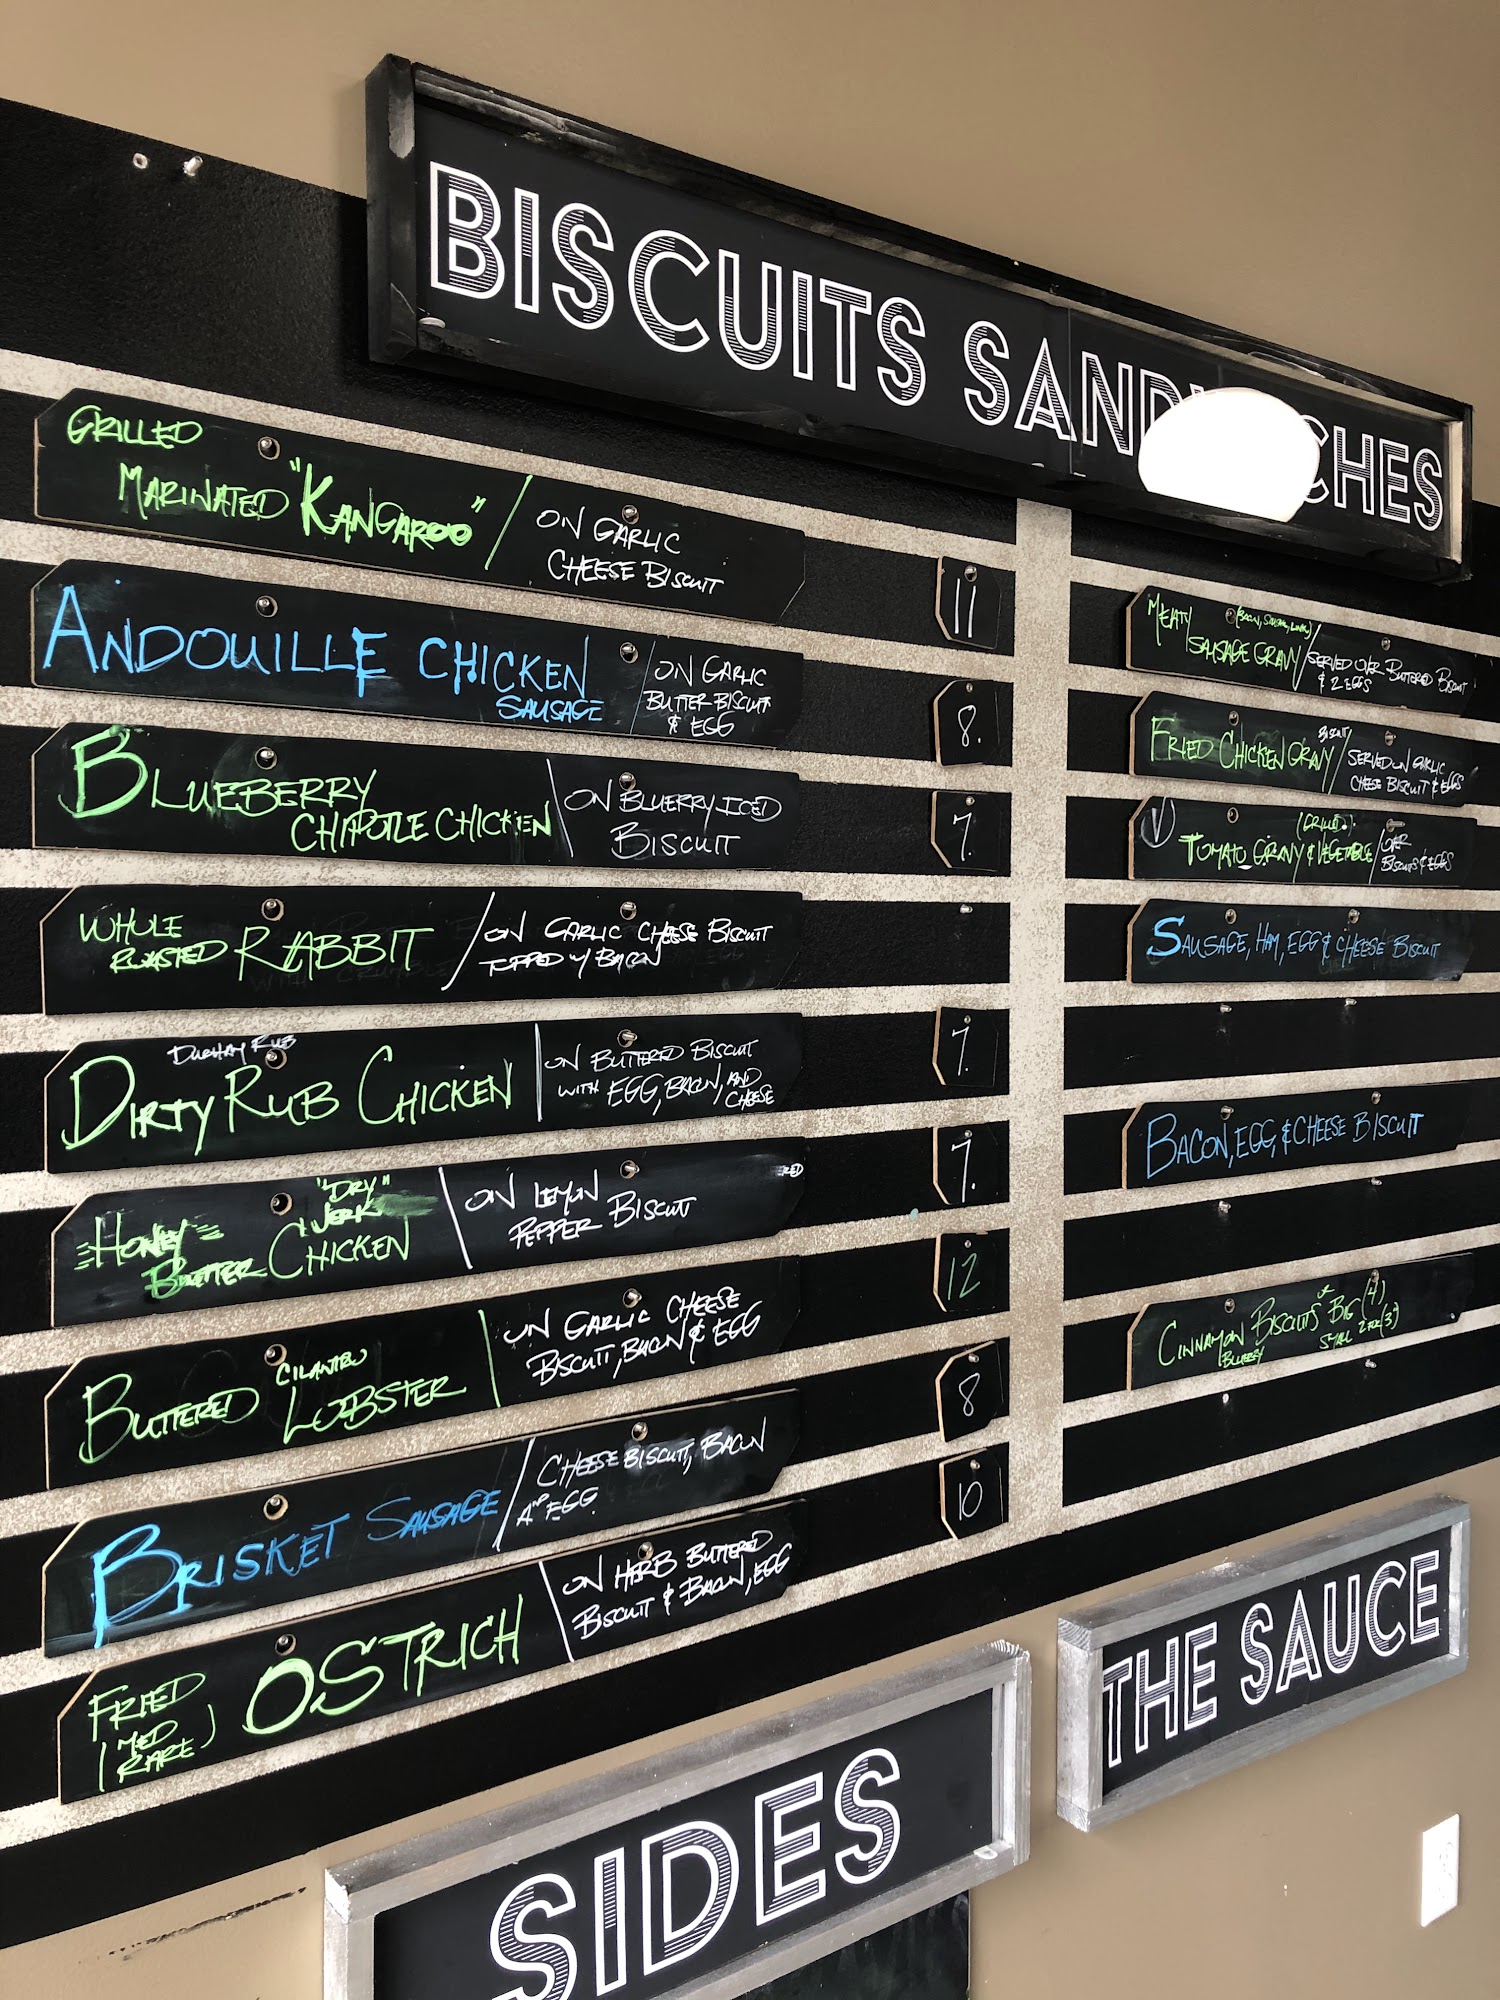 BISCUITS SANDWICHES
GRILLED
MARINATED "KANGAROO" / ON GARLIC
CHEESE BISCUIT
11
ANDOUILLE CHICKEN
SAUSAGE
/ ON GARLIC
BUTTER BISCUIT
& EGG
8.
BLUEBERRY
CHIPOTLE CHICKEN
ON BLUERRY ICED
BISCUIT
7.
WHOLE
ROASTED RABBIT / ON GARLIC CHEESE BISCUIT
TOPPED W/ BACON
DIRTY RUB CHICKEN
ON BUTTERED BISCUIT
WITH EGG, BACON, AND
CHEESE
7.
HONEY
BUTTER
"DRY"
JERK
CHICKEN
ON LEMON
PEPPER BISCUIT
7.
BUTTERED
CILANTRO
LOBSTER
ON GARLIC CHEESE
BISCUIT, BACON & EGG
12
BRISKET SAUSAGE / CHEESE BISCUIT, BACON
AND EGG.
8
FRIED
(MED
RARE)
OSTRICH
ON HERB BUTTERED
BISCUIT & BACON, EGG
10
MEATY
SAUSAGE GRAVY / SERVED OVER BUTTERED BISCUIT
& 2 EGGS
FRIED CHICKEN GRAVY
BISCUIT
/ SERVED ON GARLIC
CHEESE BISCUIT & EGGS
V
(GRILLED)
TOMATO GRAVY & VEGETABLE / OVER
BISCUITS & EGGS
SAUSAGE, HAM, EGG & CHEESE BISCUIT
BACON, EGG, & CHEESE BISCUIT
CINNAMON BISCUITS BIG (4)
BLUEBRY
SMALL 2 FOR (3)
THE SAUCE
SIDES